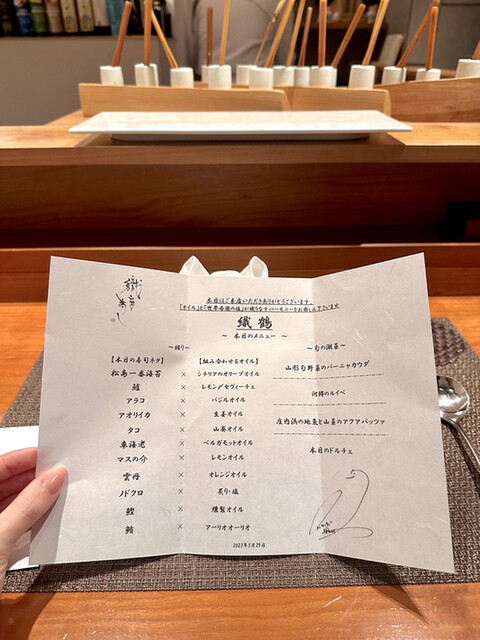 本日はご来店いただきありがとうございます。
「オイル」と「世界各国の塩」が織りなすハーモニーをお楽しみ下さいませ
織鶴
～ 本日のメニュー ～
～握り～
【本日の寿司ネタ】 【組み合わせるオイル】
松島一番海苔 × シチリアのオリーブオイル
× レモン〆セヴィーチェ
アラコ × バジルオイル
アオリイカ × 生姜オイル
タコ × 山葵オイル
車海老 × ベルガモットオイル
マスの介 × レモンオイル
雲丹 × オレンジオイル
ノドクロ × 炙り・塩
鰹 × 燻製オイル
× アーリオオーリオ
～旬の潮菜～
山形旬野菜のバーニャカウダ
のルイベ
庄内浜の地魚と山菜のアクアパッツァ
本日のドルチェ
2023年5月29日